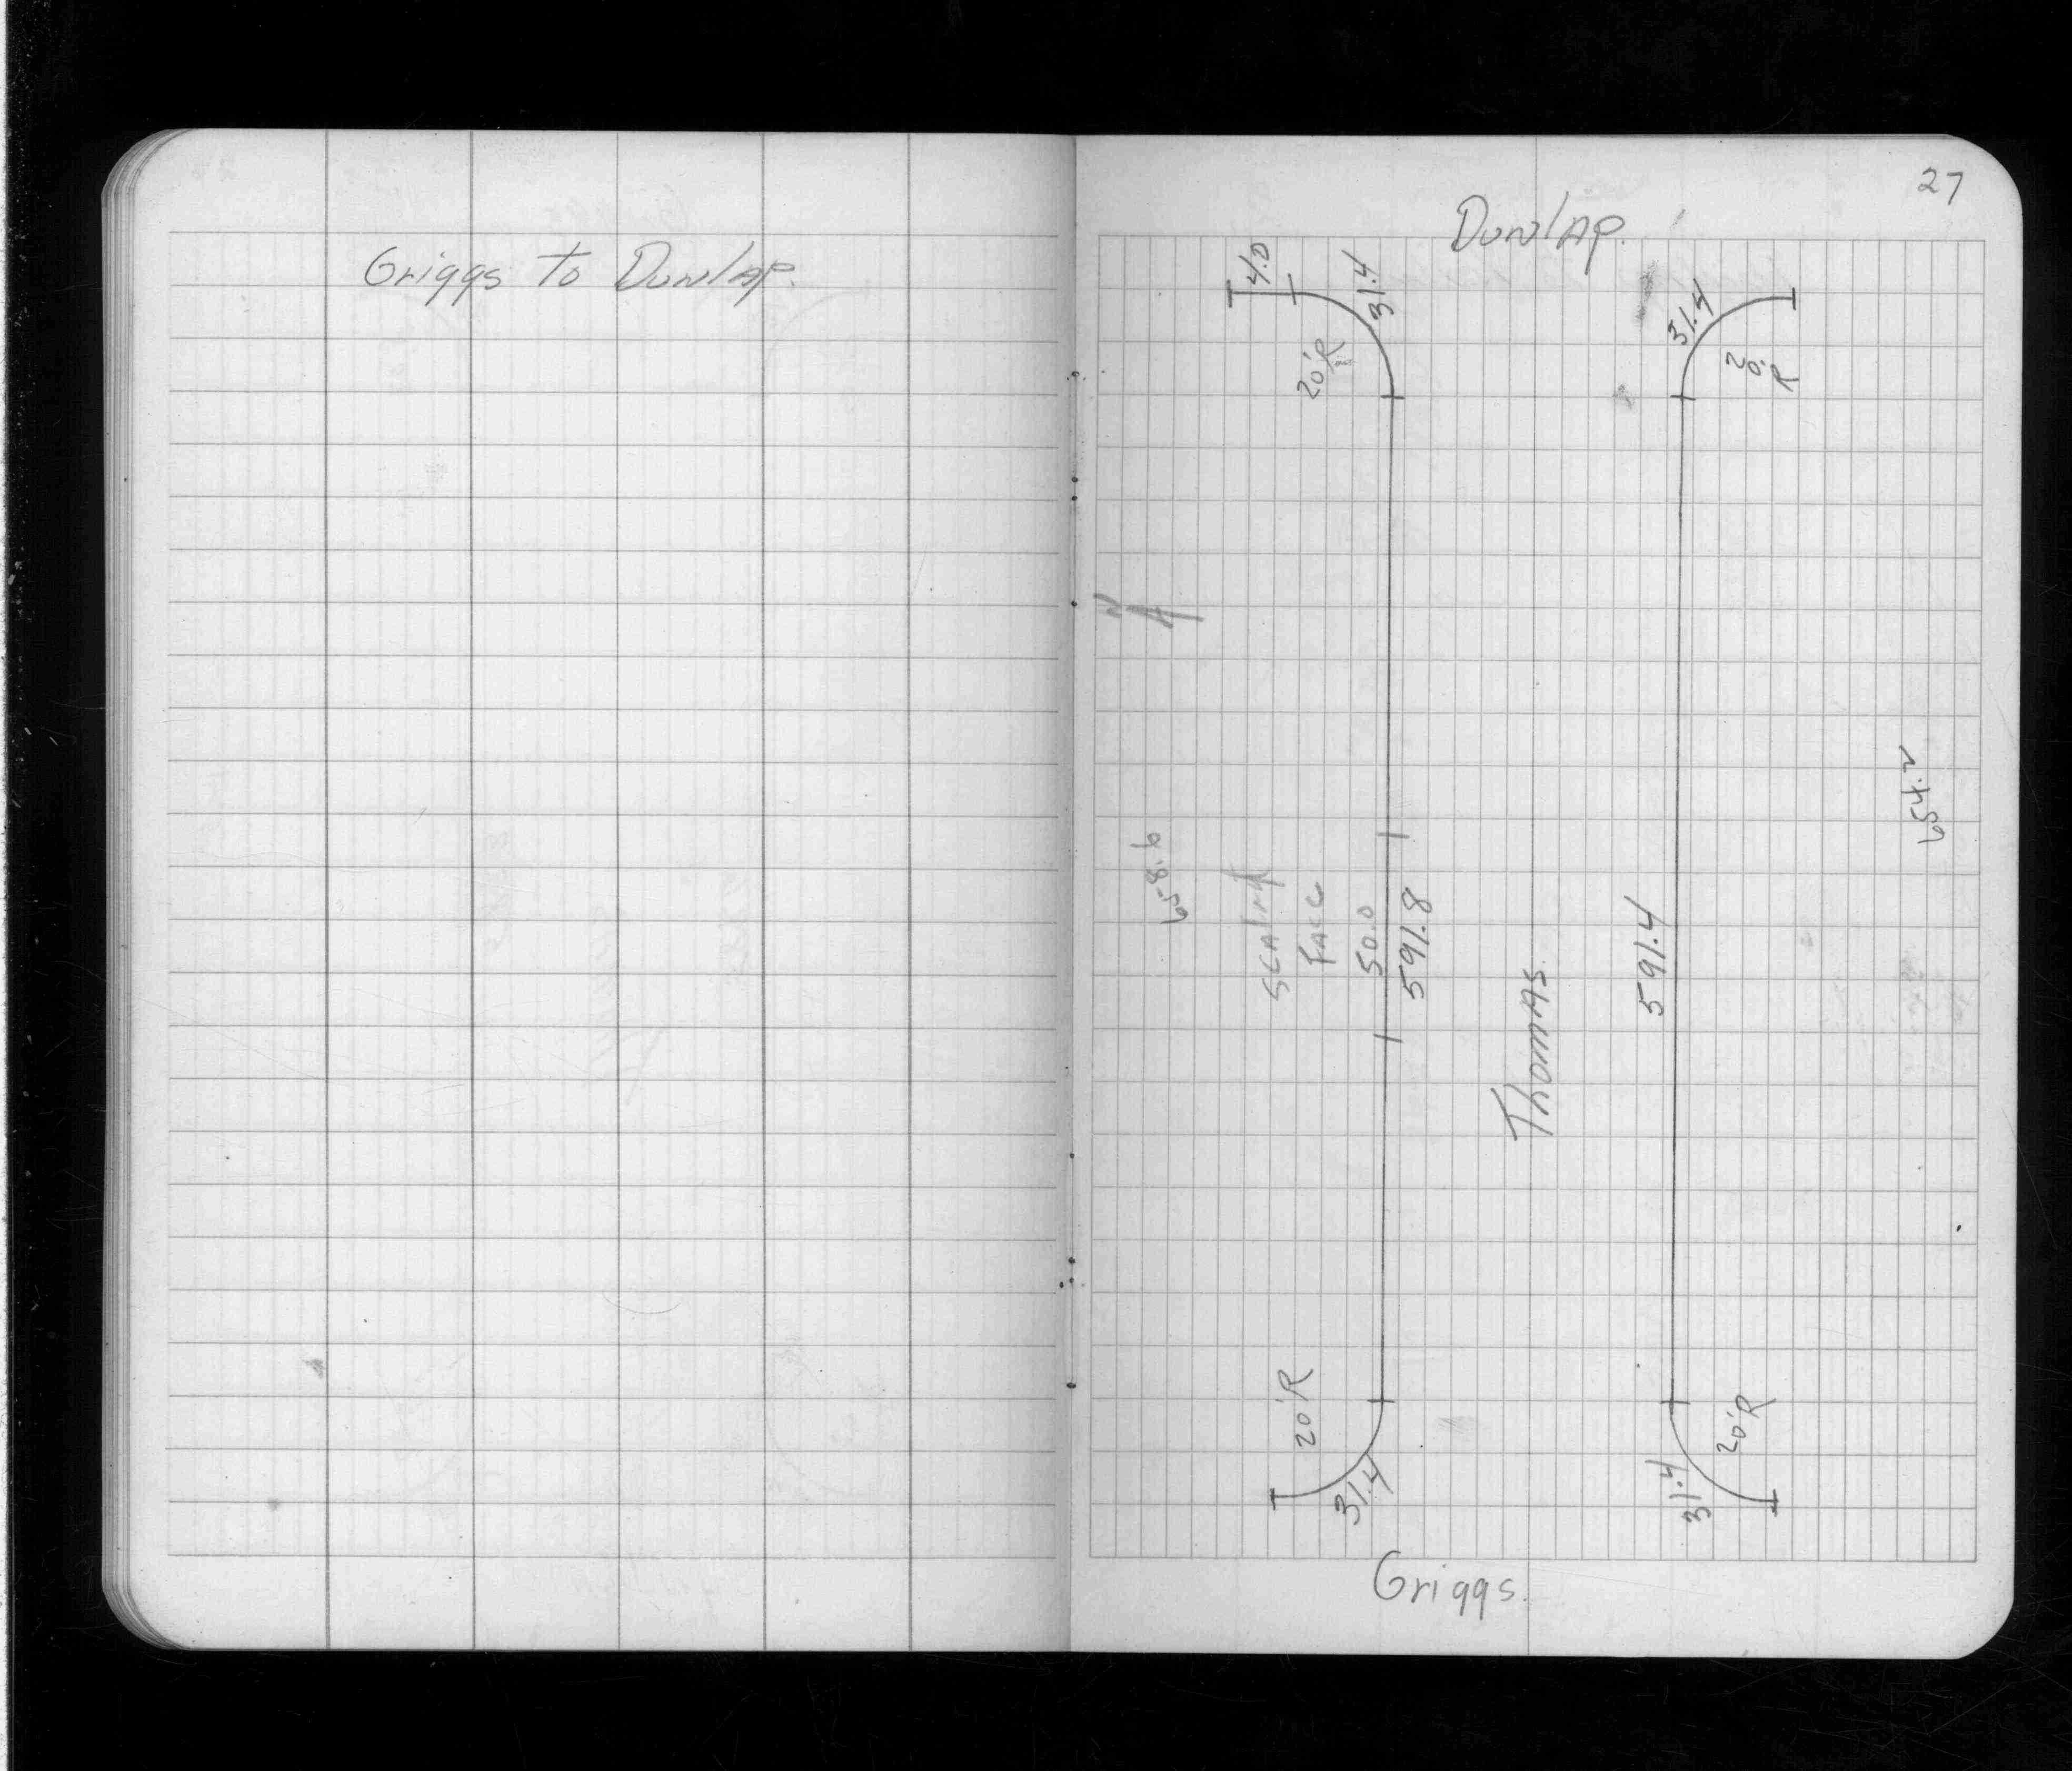 Griggs to Dunlap.
27
Dunlap.
4.0
31.4
20'R
31.4
20'
R
N
654.2
658.6
50.0
591.8
591.4
Thomas
20'R
31.4
20'R
31.4
Griggs.